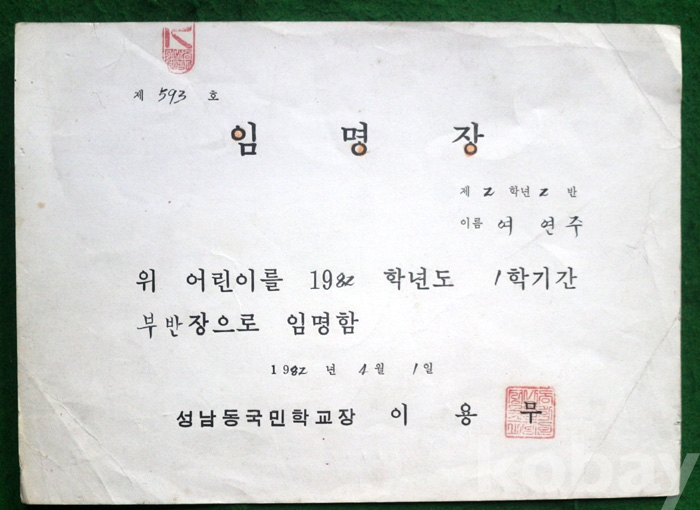 제 593 호
임 명 장
제 2 학년 2 반
이름 여 연 주
위 어린이를 1982 학년도 1학기간
부반장으로 임명함
1982 년 4 월 1 일
성남동국민학교장 이 용 무
kobay